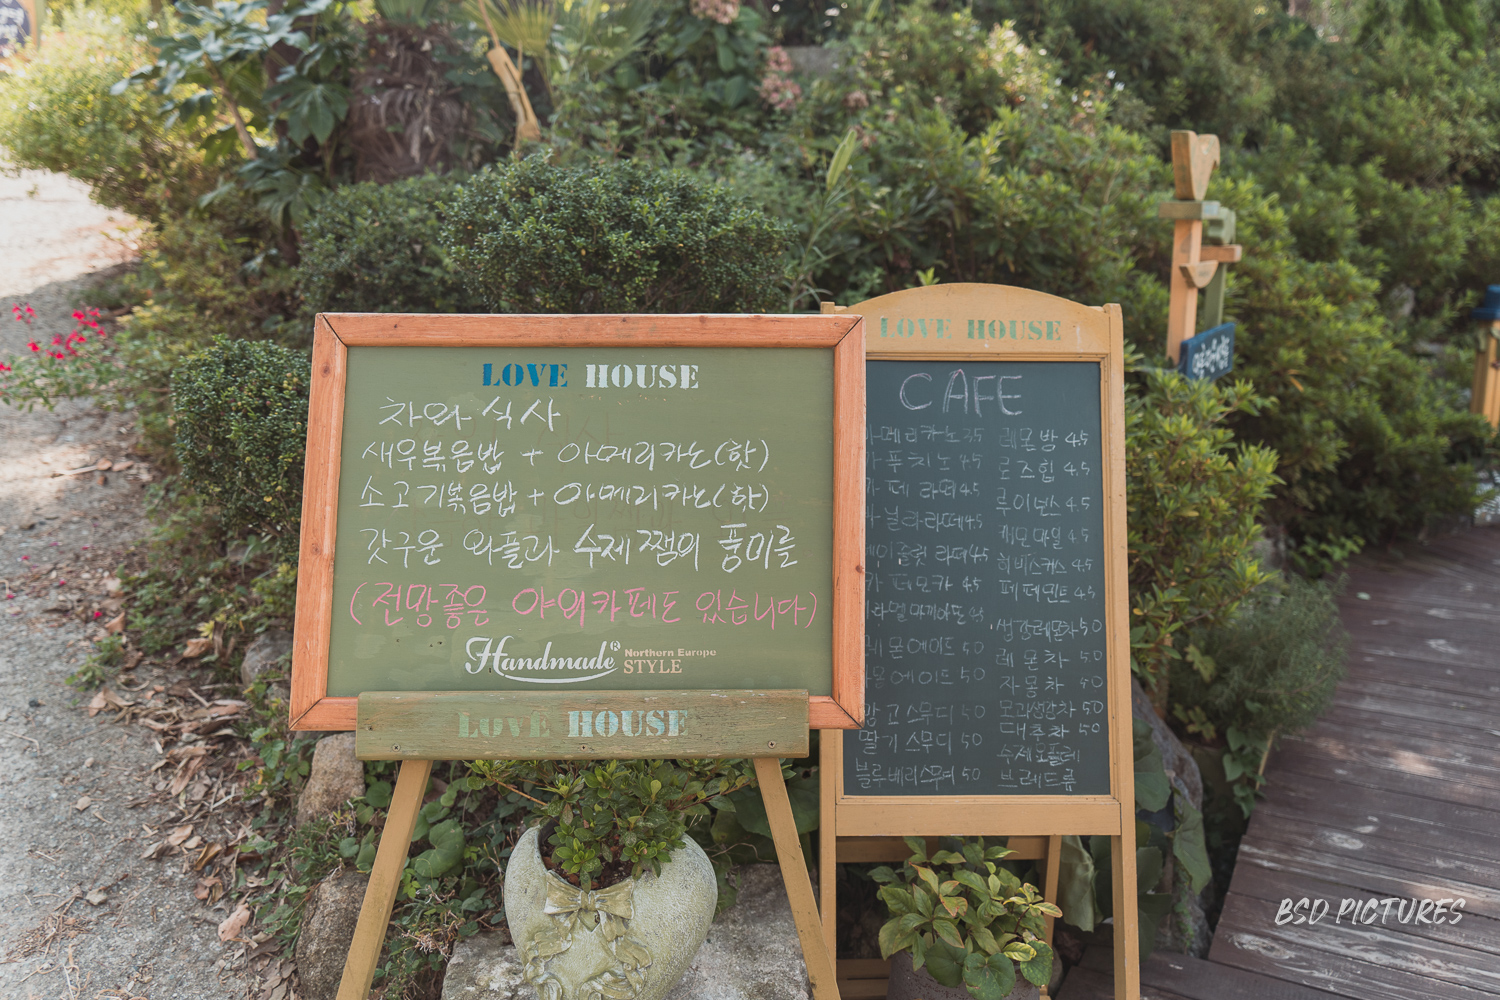 LOVE HOUSE
차와 식사
새우볶음밥 + 아메리카노(핫)
소고기볶음밥 + 아메리카노(핫)
갓구운 와플과 수제쨈의 풍미를
(전망좋은 야외카페도 있습니다)
Handmade® Northern Europe STYLE
LOVE HOUSE
LOVE HOUSE
CAFE
아메리카노 3.5
카푸치노 4.5
카페라떼 4.5
바닐라라떼 4.5
라떼 4.5
카페모카 4.5
카라멜마끼아또 4.5
레몬에이드 5.0
자몽에이드 5.0
망고스무디 5.0
딸기스무디 5.0
블루베리스무디 5.0
레몬밤 4.5
로즈힙 4.5
루이보스 4.5
캐모마일 4.5
히비스커스 4.5
페퍼민트 4.5
생강레몬차 5.0
레몬차 5.0
자몽차 5.0
모과생강차 5.0
대추차 5.0
수제와플
브레드류
BSD PICTURES